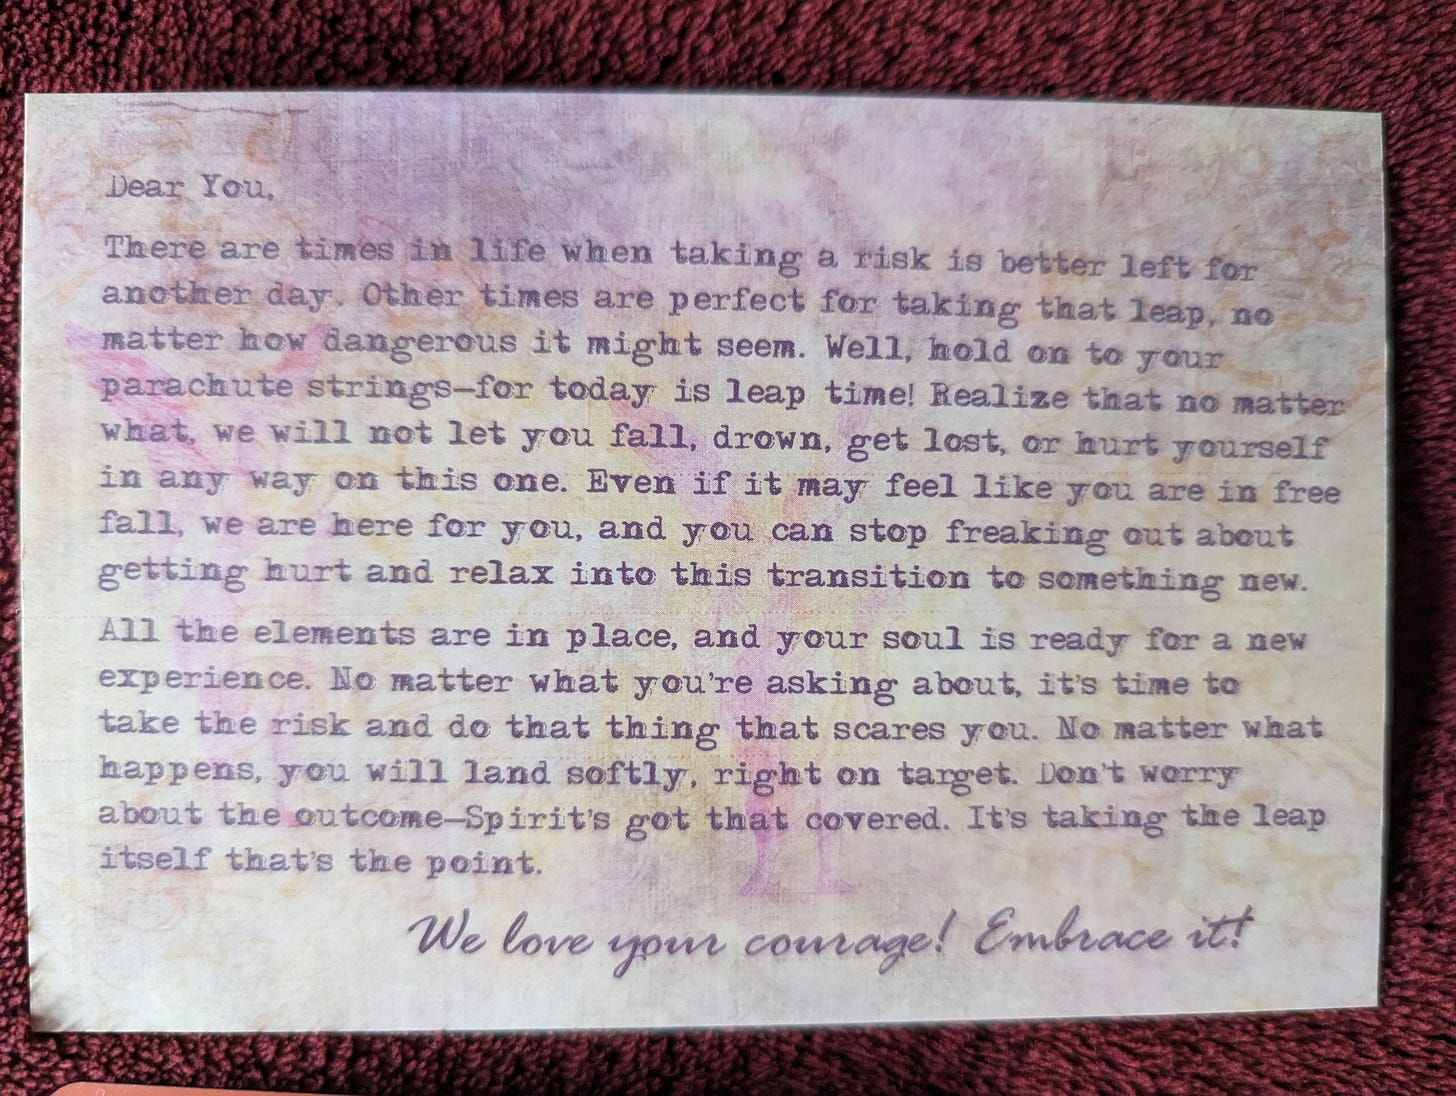 Dear You,
There are times in life when taking a risk is better left for
another day. Other times are perfect for taking that leap, no
matter how dangerous it might seem. Well, hold on to your
parachute strings—for today is leap time! Realize that no matter
what, we will not let you fall, drown, get lost, or hurt yourself
in any way on this one. Even if it may feel like you are in free
fall, we are here for you, and you can stop freaking out about
getting hurt and relax into this transition to something new.
All the elements are in place, and your soul is ready for a new
experience. No matter what you're asking about, it's time to
take the risk and do that thing that scares you. No matter what
happens, you will land softly, right on target. Don't worry
about the outcome—Spirit's got that covered. It's taking the leap
itself that's the point.
We love your courage! Embrace it!